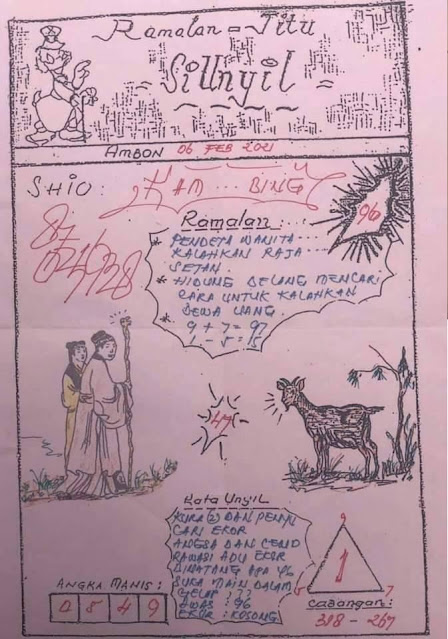 Ramalan = Jitu
= SiUnyil =
AMBON 06 FEB 2021
SHIO : KAM ... BING
96
Ramalan :
* PENDETA WANITA ....
KALAHKAN RAJA
SETAN.
* HIDUNG BELANG MENCARI
CARA UNTUK KALAHKAN
DEWA UANG.
* 9 + 7 = 97
1 - 5 = 15
47
Kata Unyil
KURA(2) DAN PENYU
CARI EKOR
ANGSA DAN CEND
RAWASI ADU EKOR
BINATANG APA YG
SUKA MAIN DALAM
GELAP ???
AWAS : 96
EKOR : KOSONG
ANGKA MANIS :
0 5 4 9
9
1
7
Cabangan :
318 - 267